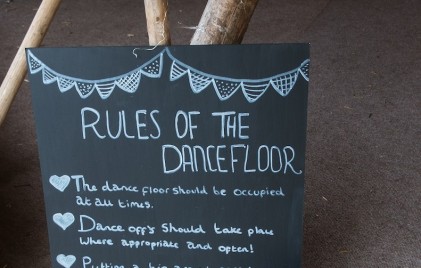 RULES OF THE
DANCEFLOOR
The dance floor should be occupied
at all times.
Dance offs should take place
where appropriate and often!
Putting a big